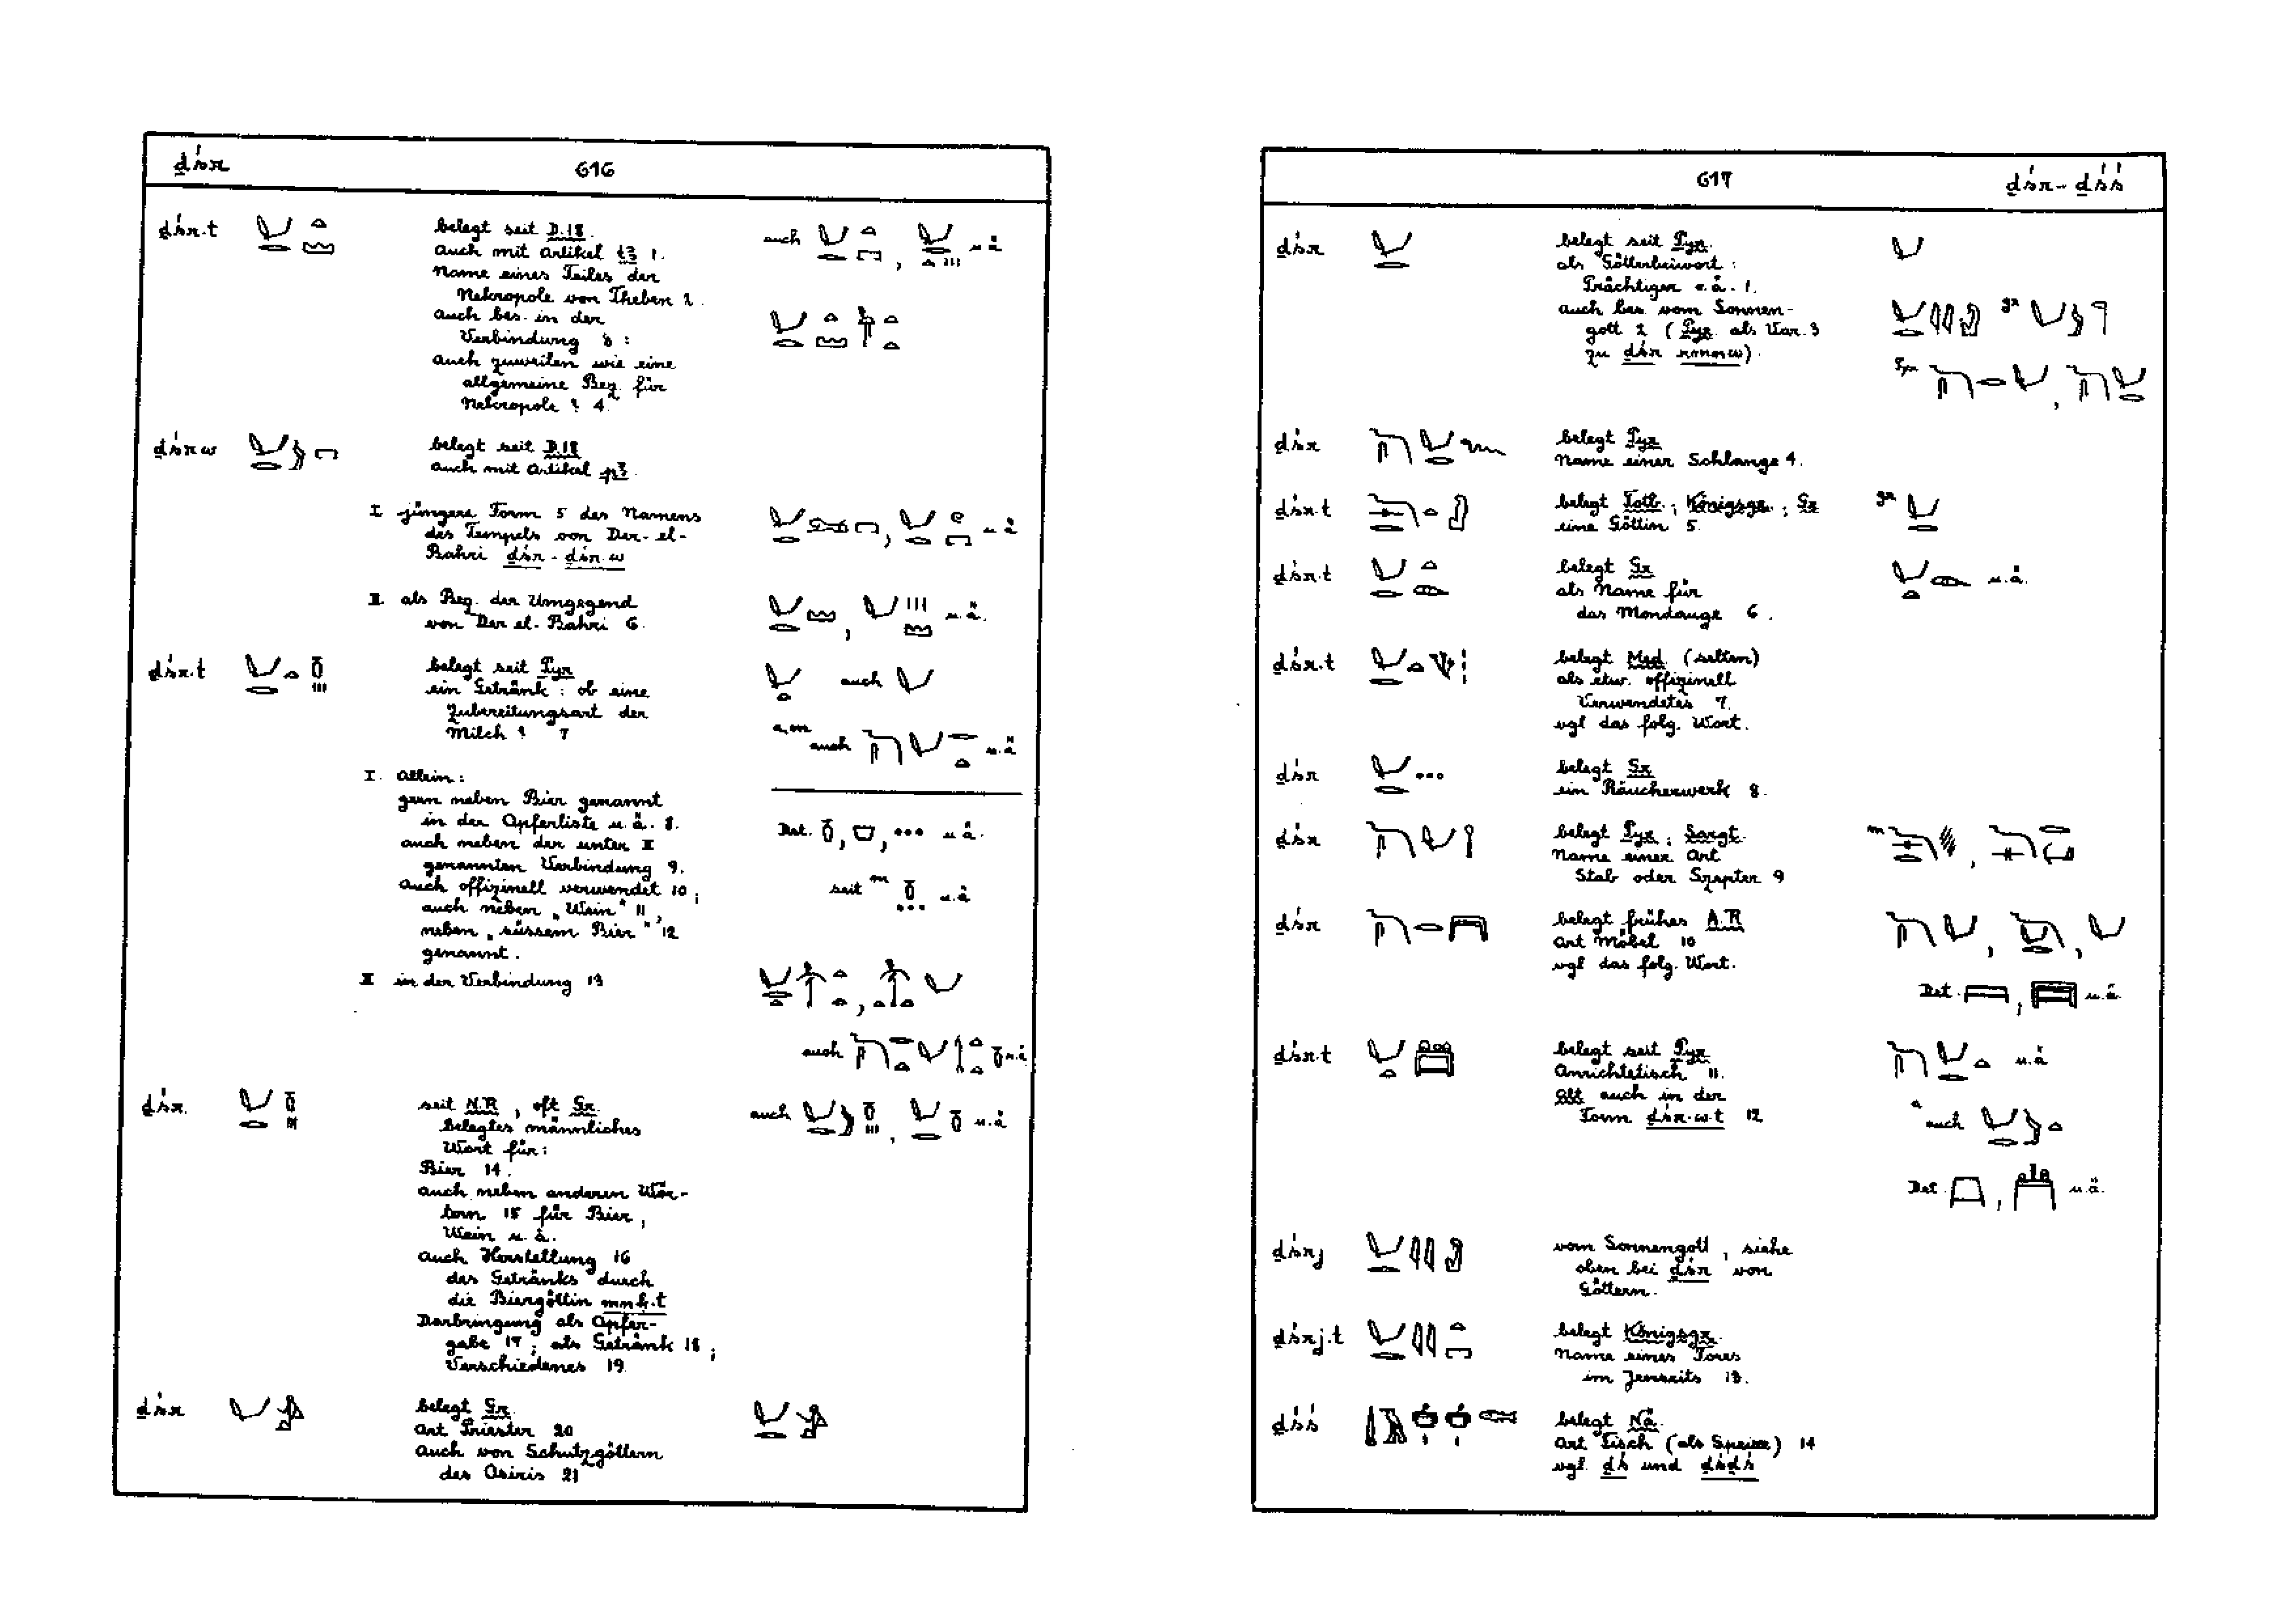 ḏśr 616
ḏśr.t belegt seit D.18. auch u.ä
auch mit Artikel tꜣ 1.
Name eines Teiles der
Nekropole von Theben 2.
auch bes. in der
Verbindung 3:
auch zuweilen wie eine
allgemeine Bez. für
Nekropole? 4.
ḏśrw belegt seit D.18
auch mit Artikel pꜣ.
I. jüngere Form 5 des Namens u.ä
des Tempels von Der-el-
Bahri ḏśr-ḏśr.w
II. als Bez. der Umgegend u.ä.
von Der el-Bahri 6.
ḏśr.t belegt seit Pyr auch
ein Getränk: ob eine
Zubereitungsart der
Milch? 7 a.m auch u.ä
I. Allein:
gern neben Bier genannt
in der Opferliste u.ä. 8. Det. u.ä.
auch neben der unter II
genannten Verbindung 9.
auch offizinell verwendet 10; seit m u.ä
auch neben „Wein" 11,
neben „süssem Bier" 12
genannt.
II in der Verbindung 13
auch u.ä
ḏśr. seit N.R, oft Gr. auch u.ä
belegtes männliches
Wort für:
Bier 14.
auch neben anderen Wör-
tern 15 für Bier,
Wein u.ä.
auch Herstellung 16
des Getränks durch
die Biergöttin mnḳ.t
Darbringung als Opfer-
gabe 17; als Getränk 18;
Verschiedenes 19.
ḏśr belegt Gr.
Art Priester 20
auch von Schutzgöttern
des Osiris 21
617 ḏśr-ḏśś
ḏśr belegt seit Pyr.
als Götterbeiwort:
Prächtiger o.ä. 1.
auch bes. vom Sonnen- gr
gott 2 (Pyr. als Var. 3
zu ḏśr rmnw). Pyr
ḏśr belegt Pyr
Name einer Schlange 4.
ḏśr.t belegt Totb.; Königsgr.; Gr gr
eine Göttin 5.
ḏśr.t belegt Gr u.ä.
als Name für
das Mondauge 6.
ḏśr.t belegt Med. (selten)
als etw. offizinell
Verwendetes 7.
vgl das folg. Wort.
ḏśr belegt Gr
ein Räucherwerk 8.
ḏśr belegt Pyr; Sargt. m
Name einer Art
Stab oder Szepter 9
ḏśr belegt frühes A.R
Art Möbel 10
vgl das folg. Wort.
Det. u.ä.
ḏśr.t belegt seit Pyr u.ä
Anrichtetisch 11.
Alt auch in der
Form ḏśr.w.t 12 a auch
Det u.ä.
ḏśrj vom Sonnengott, siehe
oben bei ḏśr von
Göttern.
ḏśrj.t belegt Königsgr.
Name eines Tores
im Jenseits 13.
ḏśś belegt Nä.
Art Fisch (als Speise) 14
vgl. ḏś und ḏśḏś